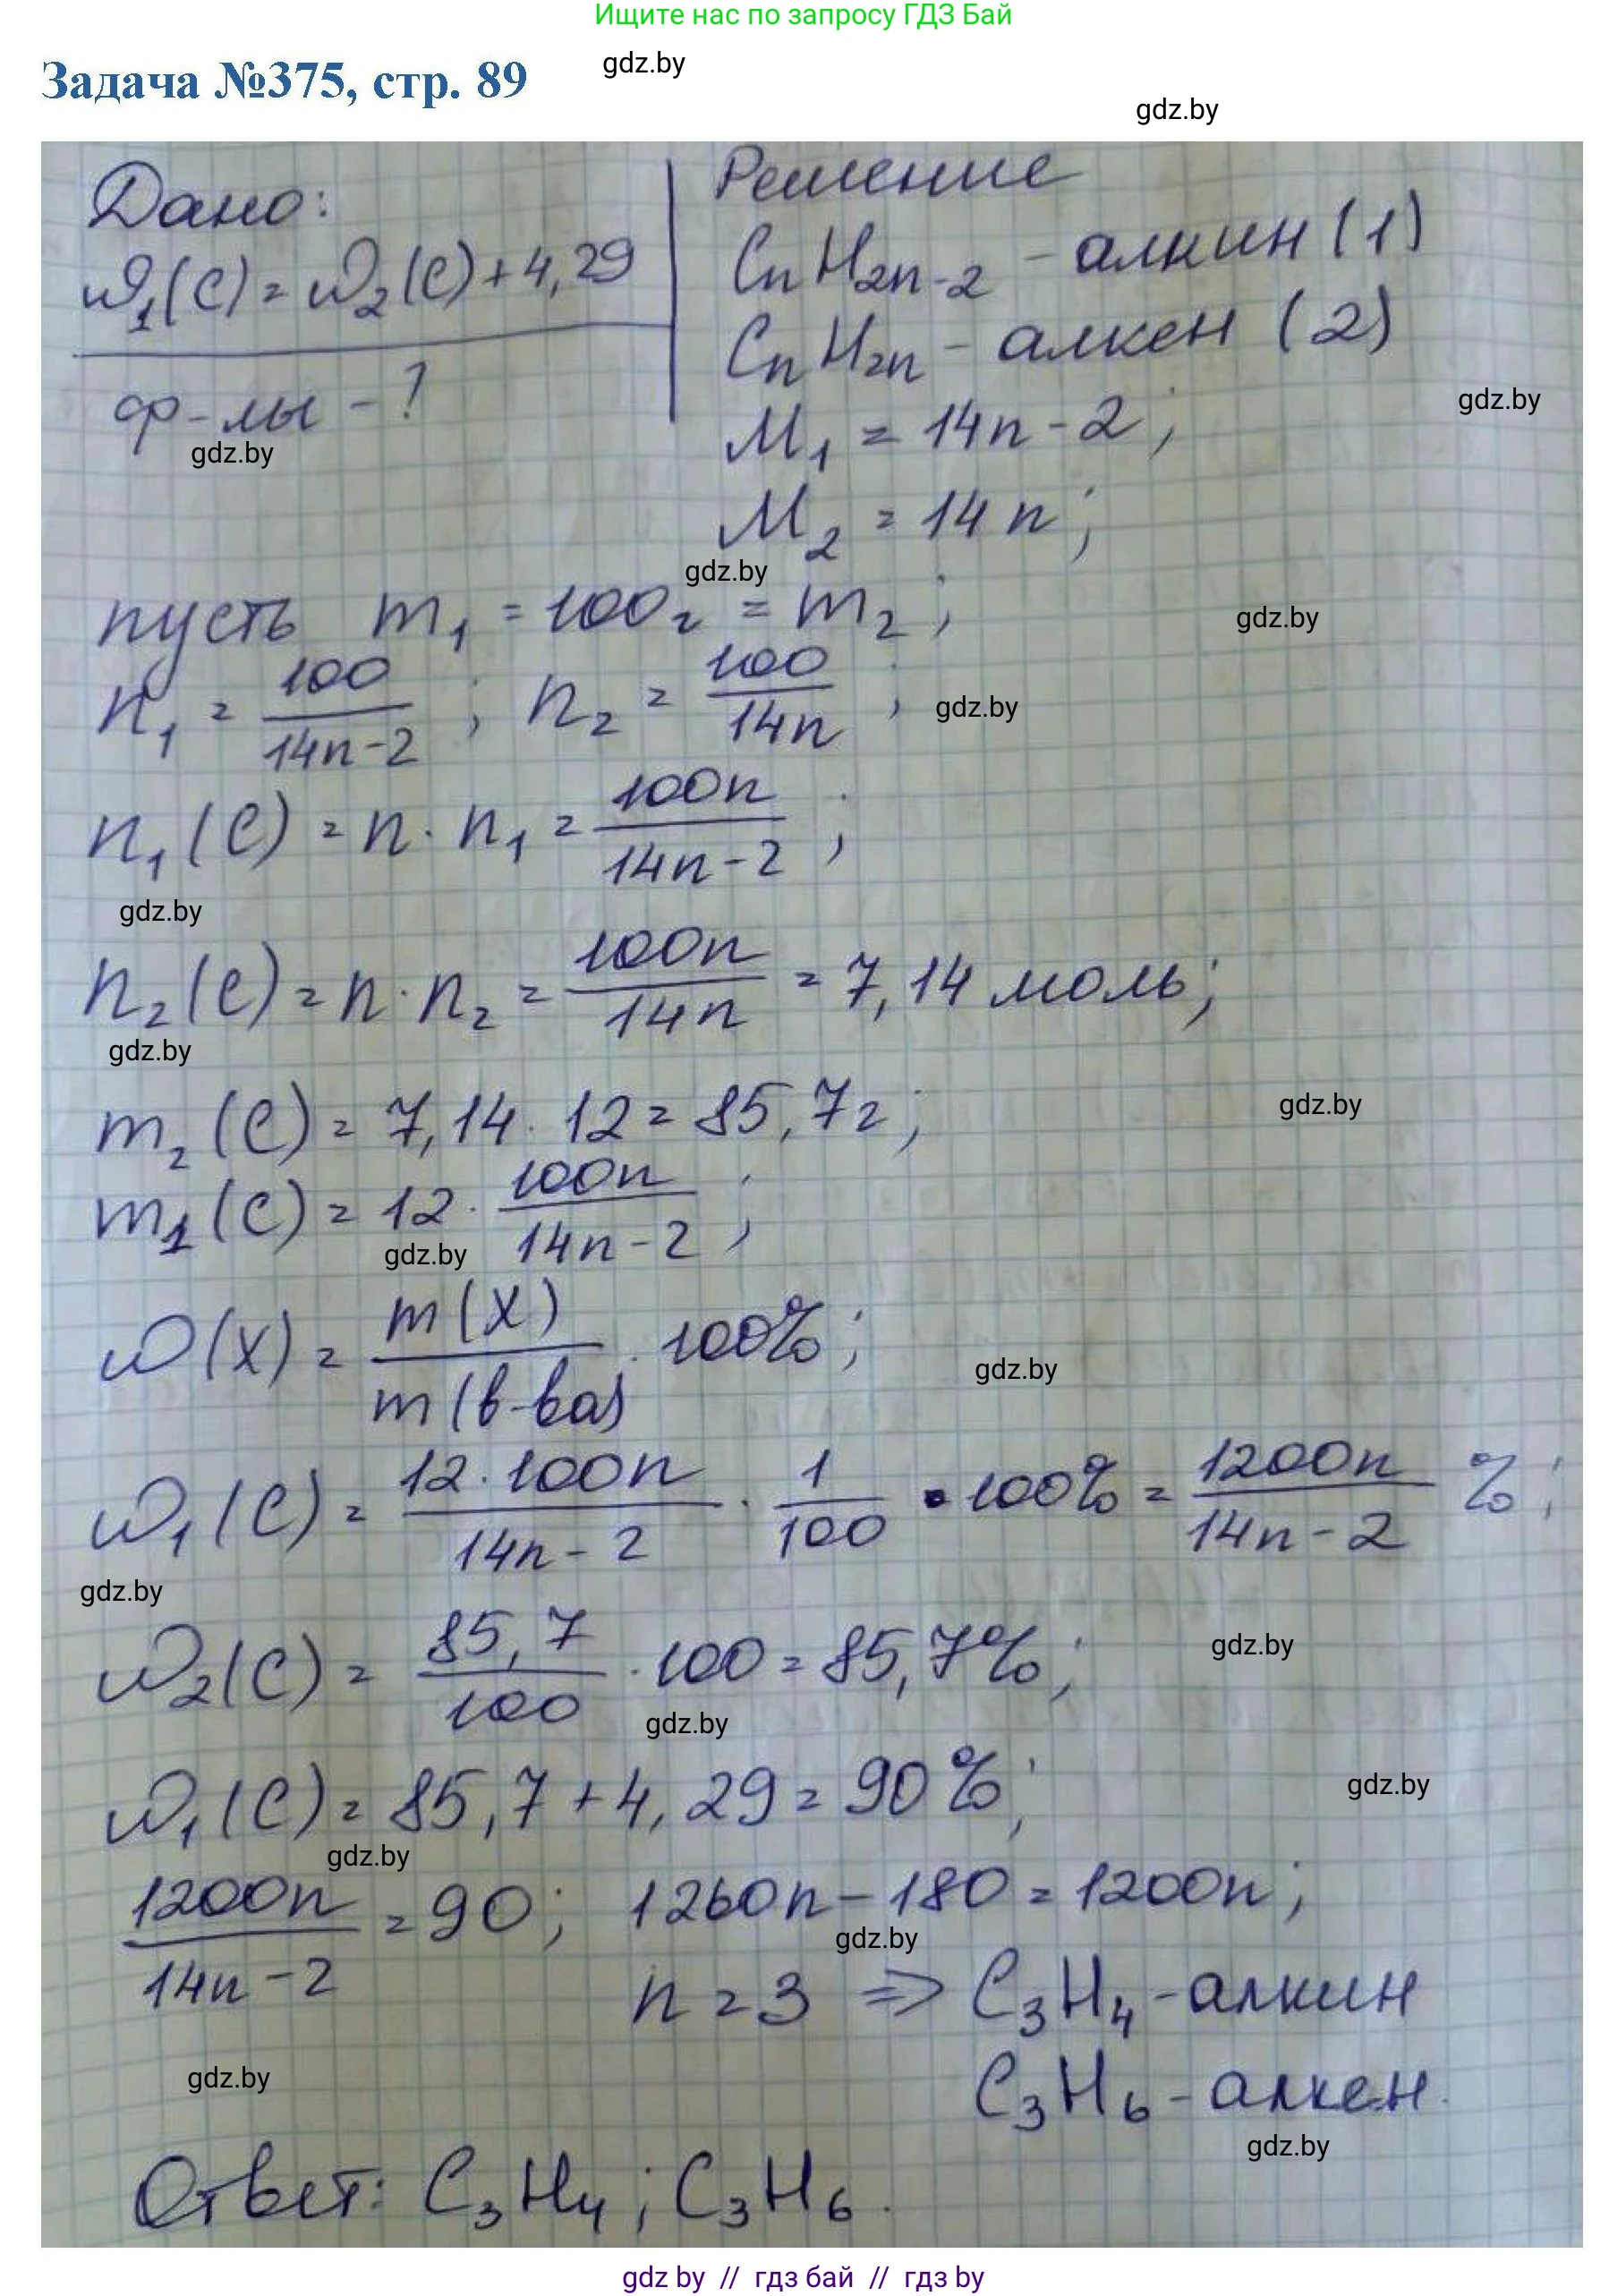 Ищите нас по запросу ГДЗ Бай
Задача №375, стр. 89
gdz.by
gdz.by
Дано:
ω₁(C) = ω₂(C) + 4,29
ф-лы - ?
gdz.by
Решение
CₙH₂ₙ₋₂ - алкин (1)
CₙH₂ₙ - алкен (2)
gdz.by
M₁ = 14n - 2;
M₂ = 14n;
gdz.by
пусть m₁ = 100г = m₂;
gdz.by
n₁ = 100/(14n-2); n₂ = 100/14n;
gdz.by
n₁(C) = n · n₁ = 100n/(14n-2);
gdz.by
n₂(C) = n · n₂ = 100n/14n = 7,14 моль;
gdz.by
m₂(C) = 7,14 · 12 = 85,7г;
gdz.by
m₁(C) = 12 · 100n/(14n-2);
gdz.by
ω(X) = m(X)/m(в-ва) · 100%;
gdz.by
ω₁(C) = 12·100n/(14n-2) · 1/100 · 100% = 1200n/(14n-2) %;
gdz.by
ω₂(C) = 85,7/100 · 100 = 85,7%;
gdz.by
gdz.by
ω₁(C) = 85,7 + 4,29 = 90%;
gdz.by
gdz.by
1200n/(14n-2) = 90; 1260n - 180 = 1200n;
gdz.by
n = 3 => C₃H₄ - алкин
gdz.by
C₃H₆ - алкен.
gdz.by
Ответ: C₃H₄; C₃H₆.
gdz by // гдз бай // гдз by